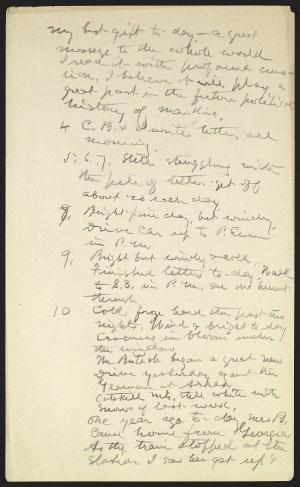 my best gift to-day — a great
message to the whole world
I read it with profound
I believe it will play a
great part in the future political
history of mankind.
4 C. B. & I write letters all
morning.
5, 6, 7, Still struggling with
the pile of letters: get off
about 20 each day
8, Bright fine day, but windy,
Drive car up to
in P.M.
9, Bright but windy & cold,
Finished letters to-day, Walk
to S.S. in P.M.
through.
10 Cold, froze hard the past two
nights. Wind & bright to-day
Crocuses in bloom under
the window
The British began a great new
Drive yesterday against the
Germans at Arras,
Catskill Mts. still white with
snow of last week,
one year ago to-day Mrs B.
came home from Georgia
As the train stopped at the
station I saw her get up &